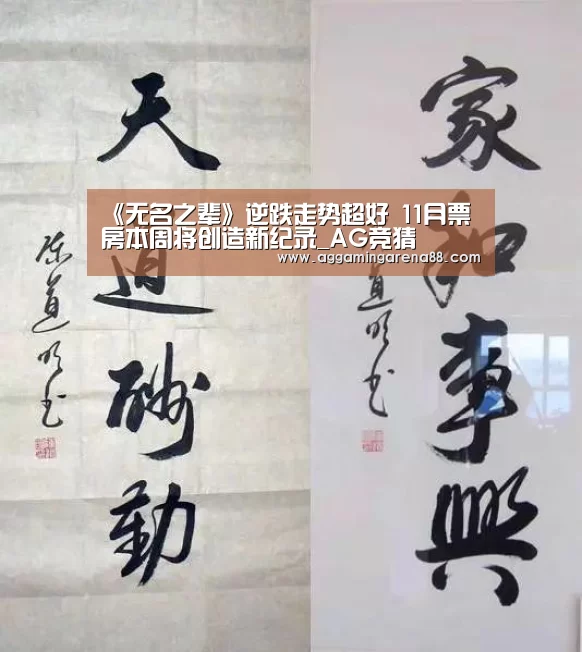 天道酬勤
陈道明书
家和事興
道明书
《无名之辈》逆跌走势超好 11月票
房本周将创造新纪录_AG竞猜
www.aggamingarena88.com